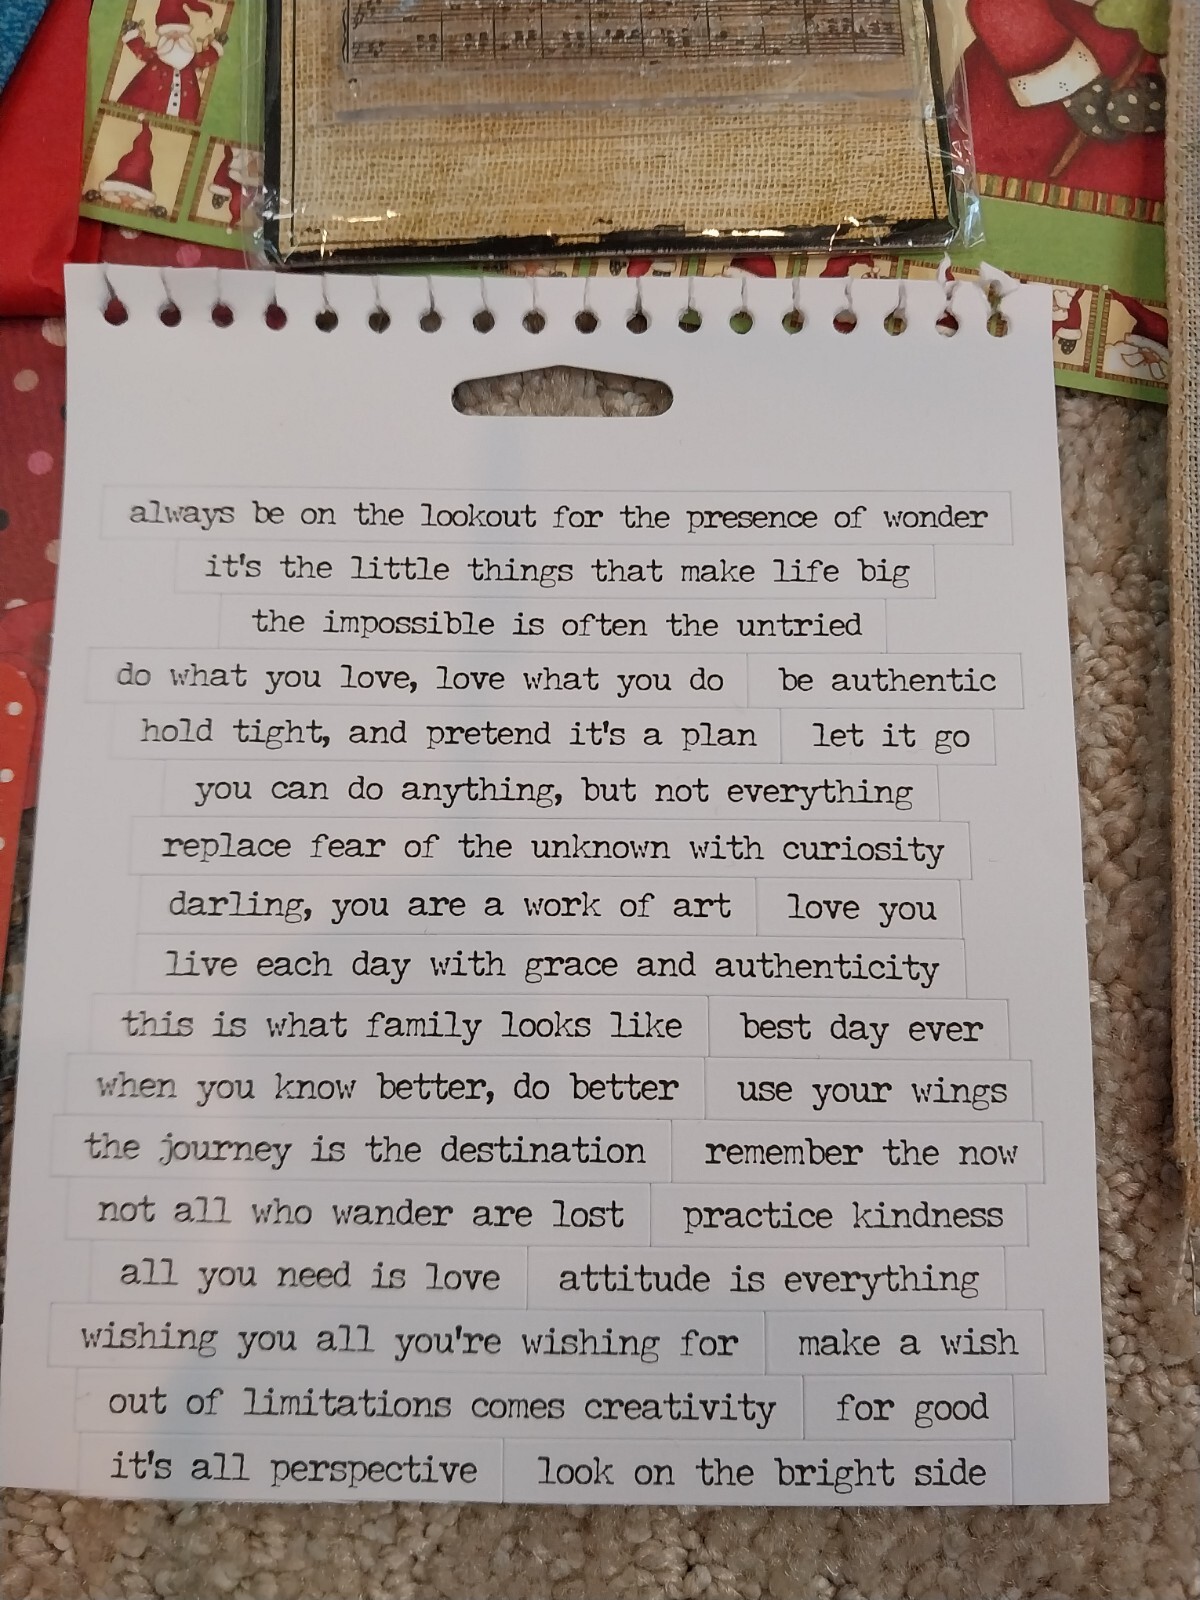 always be on the lookout for the presence of wonder
it's the little things that make life big
the impossible is often the untried
do what you love, love what you do be authentic
hold tight, and pretend it's a plan let it go
you can do anything, but not everything
replace fear of the unknown with curiosity
darling, you are a work of art love you
live each day with grace and authenticity
this is what family looks like best day ever
when you know better, do better use your wings
the journey is the destination remember the now
not all who wander are lost practice kindness
all you need is love attitude is everything
wishing you all you're wishing for make a wish
out of limitations comes creativity for good
it's all perspective look on the bright side